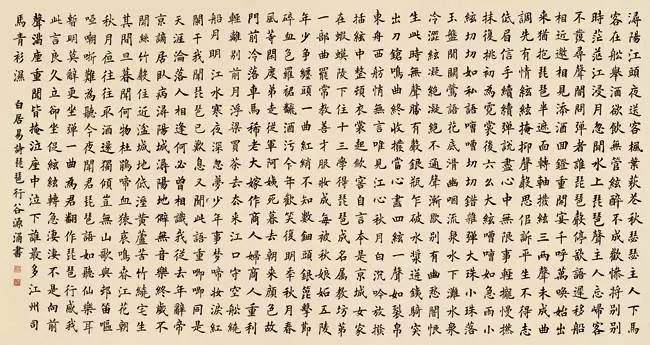 潯陽江頭夜送客楓葉荻花秋瑟瑟主人下馬
客在船舉酒欲飲無管絃醉不成歡慘將別別
時茫茫江浸月忽聞水上琵琶聲主人忘歸客
不發尋聲闇問彈者誰琵琶聲停欲語遲移船
相近邀相見添酒回燈重開宴千呼萬喚始出
來猶抱琵琶半遮面轉軸撥絃三兩聲未成曲
調先有情絃絃掩抑聲聲思似訴平生不得志
低眉信手續續彈說盡心中無限事輕攏慢撚
抹復挑初為霓裳後六幺大絃嘈嘈如急雨小
絃切切如私語嘈嘈切切錯雜彈大珠小珠落
玉盤間關鶯語花底滑幽咽流泉水下灘水泉
冷澀絃凝絕凝絕不通聲漸歇別有幽愁闇恨
生此時無聲勝有聲銀瓶乍破水漿迸鐵騎突
出刀鎗鳴曲終收撥當心畫四絃一聲如裂帛
東舟西舫悄無言唯見江心秋月白沉吟放撥
插絃中整頓衣裳起斂容自言本是京城女家
在蝦蟆陵下住十三學得琵琶成名屬教坊第
一部曲罷常教善才服妝成每被秋娘妒五陵
年少爭纏頭一曲紅綃不知數鈿頭銀篦擊節
碎血色羅裙翻酒污今年歡笑復明年秋月春
風等閒度弟走從軍阿姨死暮去朝來顏色故
門前冷落車馬稀老大嫁作商人婦商人重利
輕離別前月浮梁買茶去去來江口守空船繞
船月明江水寒夜深忽夢少年事夢啼妝淚紅
闌干我聞琵琶已歎息又聞此語重唧唧同是
天涯淪落人相逢何必曾相識我從去年辭帝
京謫居臥病潯陽城潯陽地僻無音樂終歲不
聞絲竹聲住近湓城地低濕黃蘆苦竹繞宅生
其間旦暮聞何物杜鵑啼血猿哀鳴春江花朝
秋月夜往往取酒還獨傾豈無山歌與村笛嘔
啞嘲哳難為聽今夜聞君琵琶語如聽仙樂耳
暫明莫辭更坐彈一曲為君翻作琵琶行感我
此言良久立却坐促絃絃轉急淒淒不是向前
聲滿座重聞皆掩泣座中泣下誰最多江州司
馬青衫濕 白居易詩琵琶行谷源涌書